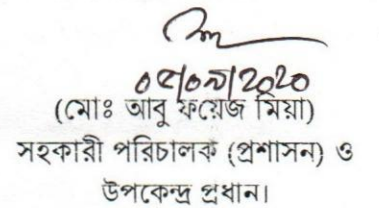 ০৫/০৯/2020
(মোঃ আবু ফয়েজ মিয়া)
সহকারী পরিচালক (প্রশাসন) ও
উপকেন্দ্র প্রধান।